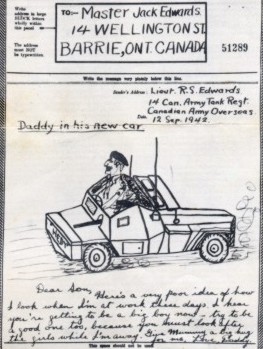 Write
address in large
BLOCK letters
wholly within
this panel
The address
must NOT
be typewritten.
TO:- Master Jack Edwards
14 WELLINGTON ST.
BARRIE, ONT. CANADA
51289
Write the message very plainly below this line.
Sender's Address: Lieut. R.S. Edwards
14 Can. Army Tank Regt.
Canadian Army Overseas
Date 12 Sep. 1942.
Daddy in his new car
Dear Son,
Here's a very poor idea of how
I look when I'm at work these days. I hear
you're getting to be a big boy now - try to be
a good one too, because you must look after
the girls while I'm away. Give Mummy a big hug
for me. Love Daddy
This space should not be used.